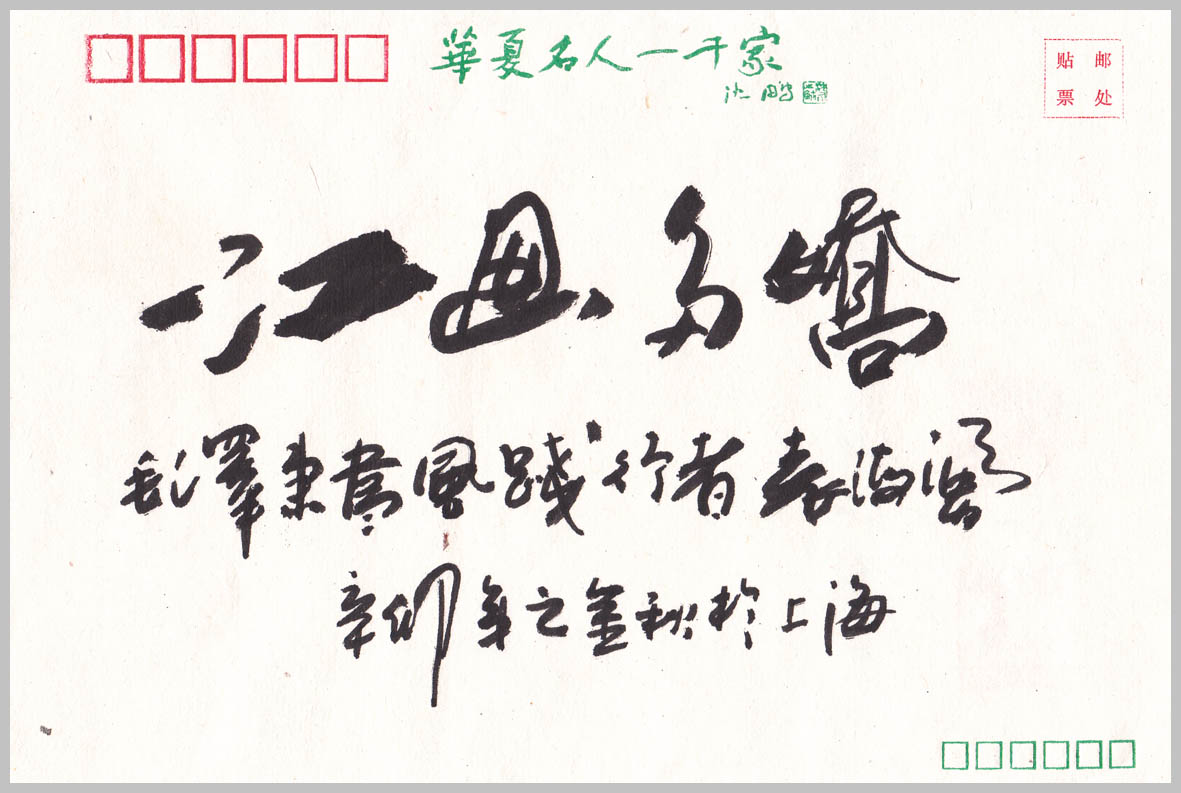 華夏名人一千家
沈鹏
贴邮
票处
江多嬌
毛澤東書風踐行者海
辛卯年之金秋於上海